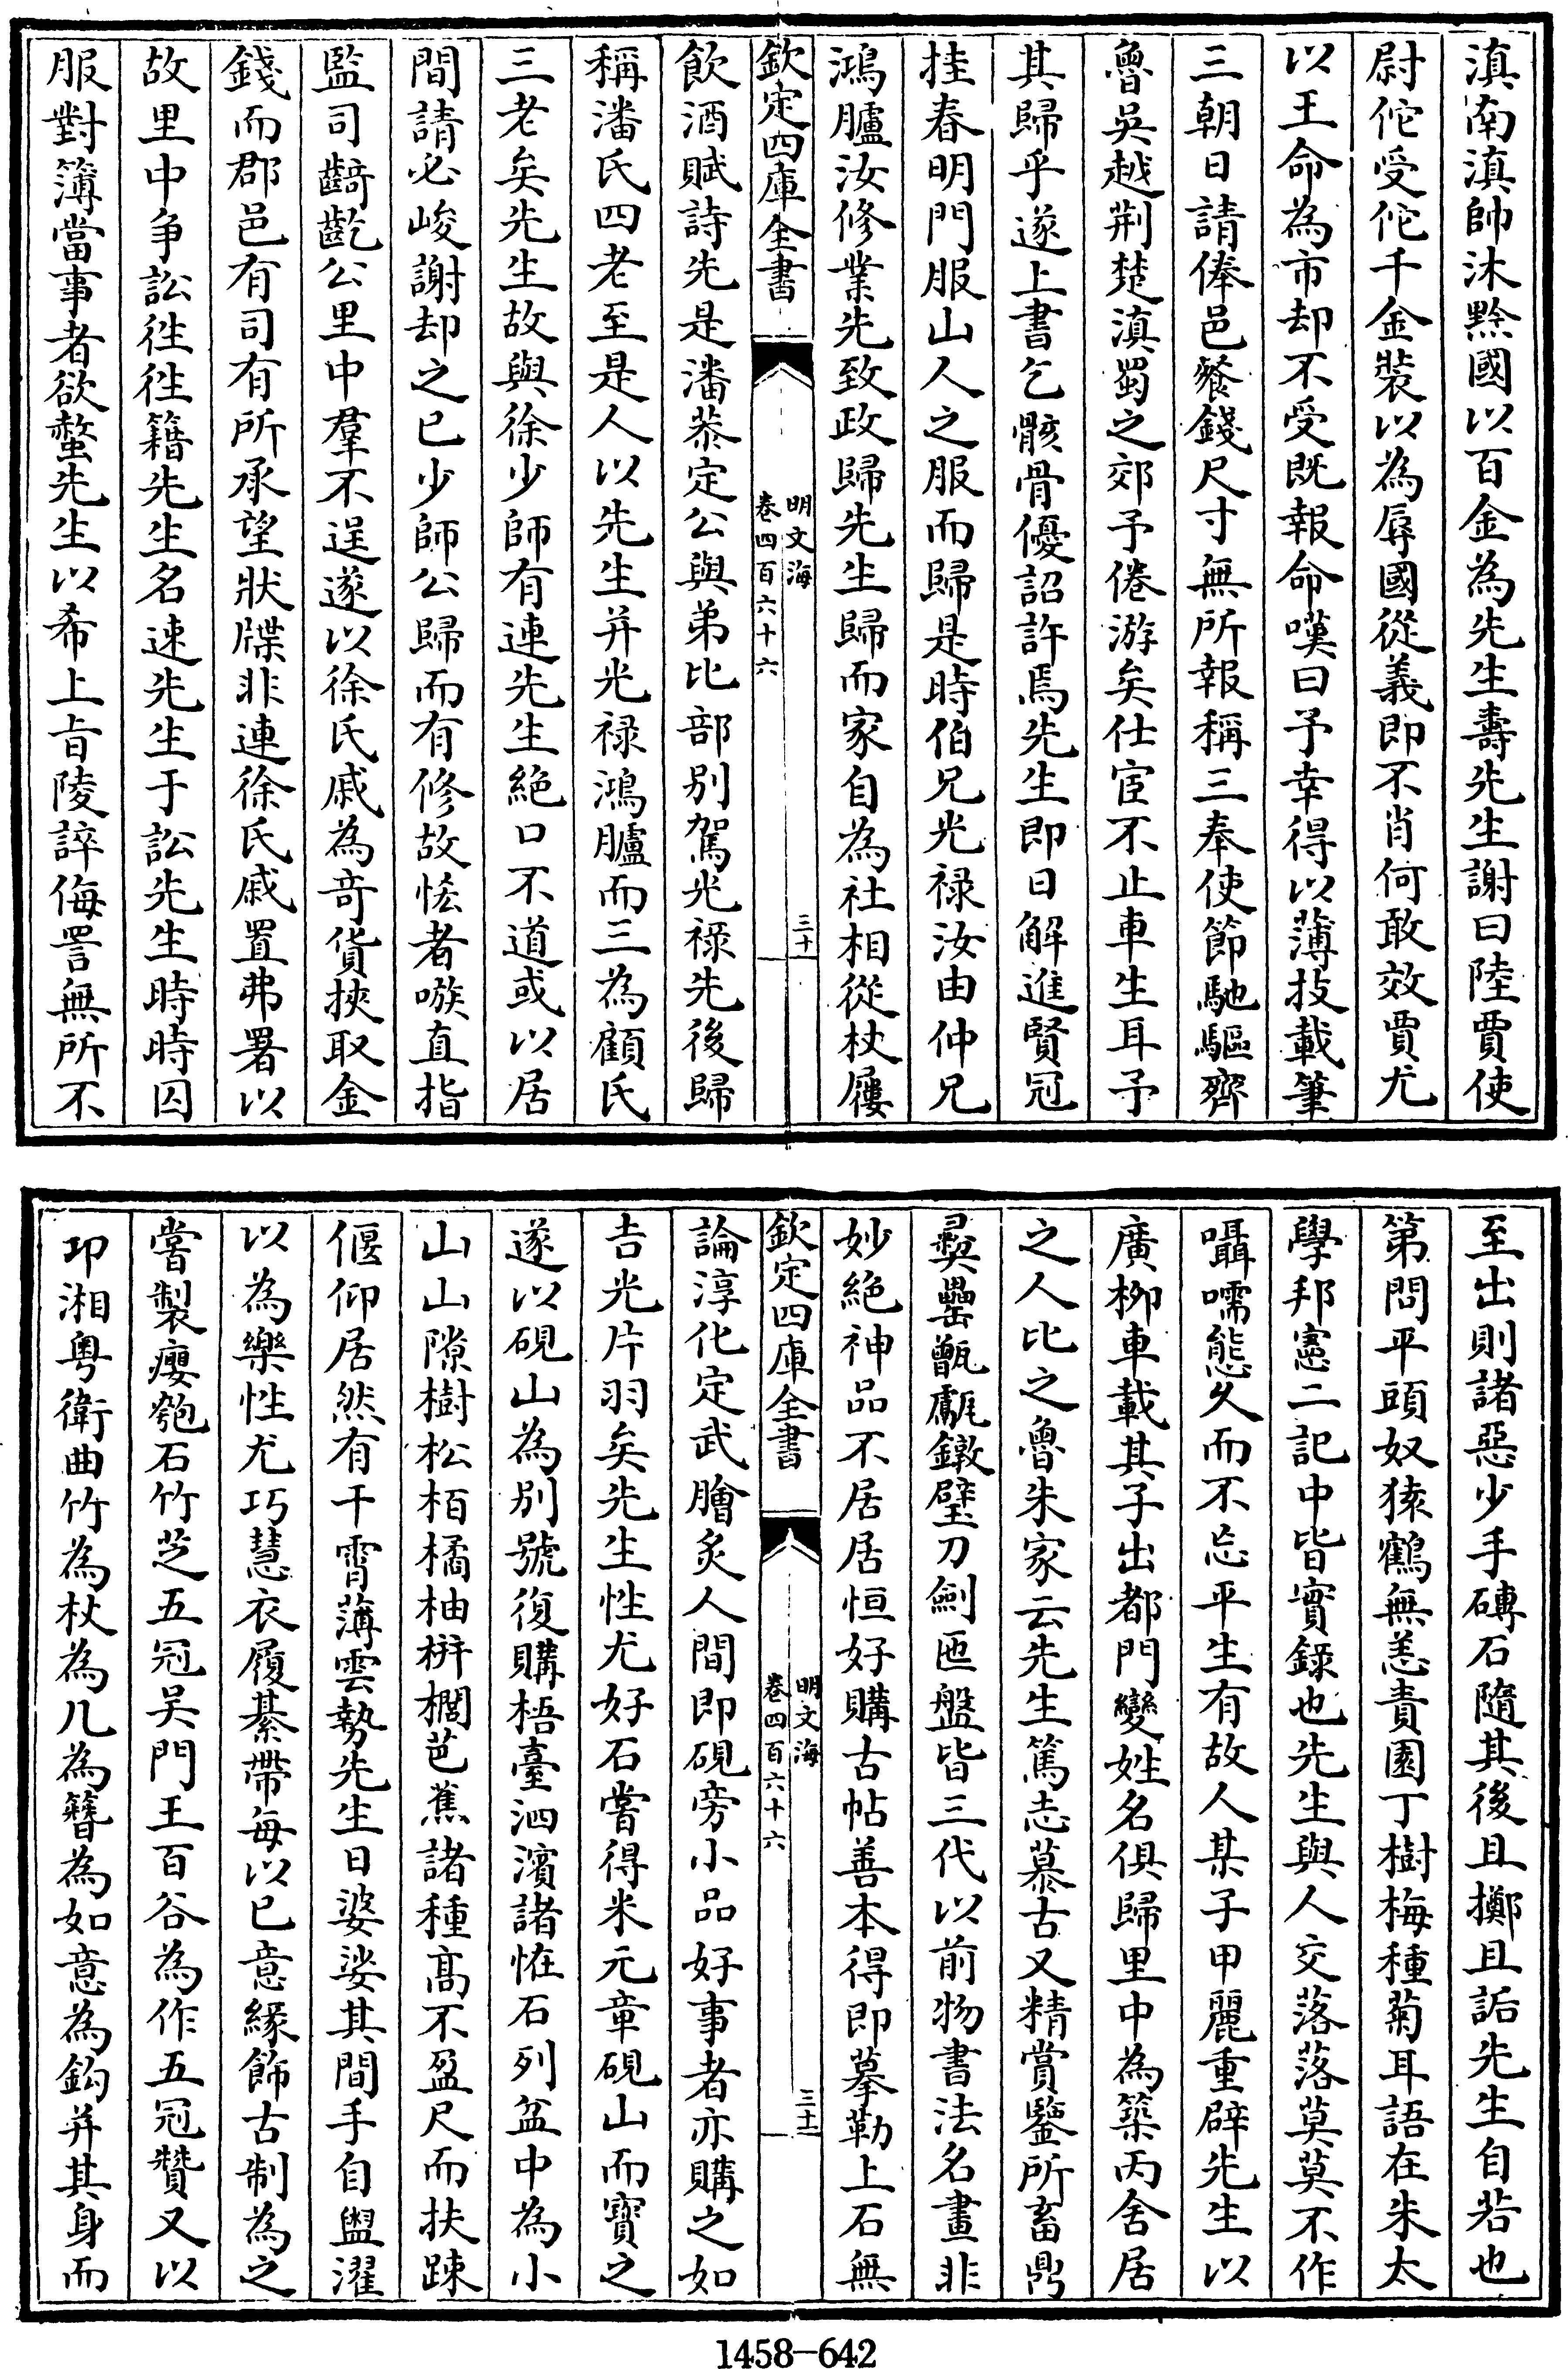 滇南滇帥沐黔國以百金為先生壽先生謝曰陸賈使
尉佗受佗千金裝以為辱國從義即不肖何敢效賈尤
以王命為市却不受既報命嘆曰予幸得以薄技載筆
三朝日請俸邑餐錢尺寸無所報稱三奉使節馳驅齊
魯吳越荆楚滇蜀之郊予倦游矣仕宦不止車生耳予
其歸乎遂上書乞骸骨優詔許焉先生即日解進賢冠
挂春明門服山人之服而歸是時伯兄光禄汝由仲兄
鴻臚汝修業先致政歸先生歸而家自為社相從杖屨
欽定四庫全書
明文海
卷四百六十六
三十
飲酒賦詩先是潘恭定公與弟比部別駕光禄先後歸
稱潘氏四老至是人以先生并光禄鴻臚而三為顧氏
三老矣先生故與徐少師有連先生絶口不道或以居
間請必峻謝却之已少師公歸而有修故恡者嗾直指
監司齮齕公里中羣不逞遂以徐氏戚為竒貨挾取金
錢而郡邑有司有所承望狀牒非連徐氏戚置弗署以
故里中争訟徃徃籍先生名速先生于訟先生時時囚
服對簿當事者欲螫先生以希上㫖陵誶侮詈無所不
至出則諸惡少手磚石隨其後且擲且詬先生自若也
第問平頭奴猿鶴無恙責園丁樹梅種菊耳語在朱太
學邦憲二記中皆實錄也先生與人交落落莫莫不作
囁嚅態久而不忘平生有故人某子甲麗重辟先生以
廣柳車載其子出都門變姓名俱歸里中為築丙舍居
之人比之魯朱家云先生篤志慕古又精賞鑒所畜鼎
彞罍甑甗鐓璧刀劍匜盤皆三代以前物書法名畫非
妙絶神品不居居恒好購古帖善本得即摹勒上石無
欽定四庫全書
明文海
卷四百六十六
三十一
論淳化定武膾炙人間即硯旁小品好事者亦購之如
吉光片羽矣先生性尤好石嘗得米元章硯山而寳之
遂以硯山為別號復購梧臺泗濱諸恠石列盆中為小
山山隙樹松栢橘柚栟櫚芭蕉諸種髙不盈尺而扶踈
偃仰居然有干霄薄雲勢先生日婆娑其間手自盥濯
以為樂性尤巧慧衣履綦帶每以已意緣飾古制為之
嘗製癭匏石竹芝五冠吴門王百谷為作五冠贊又以
卭湘粤衛曲竹為杖為几為簪為如意為鈎并其身而
1458-642